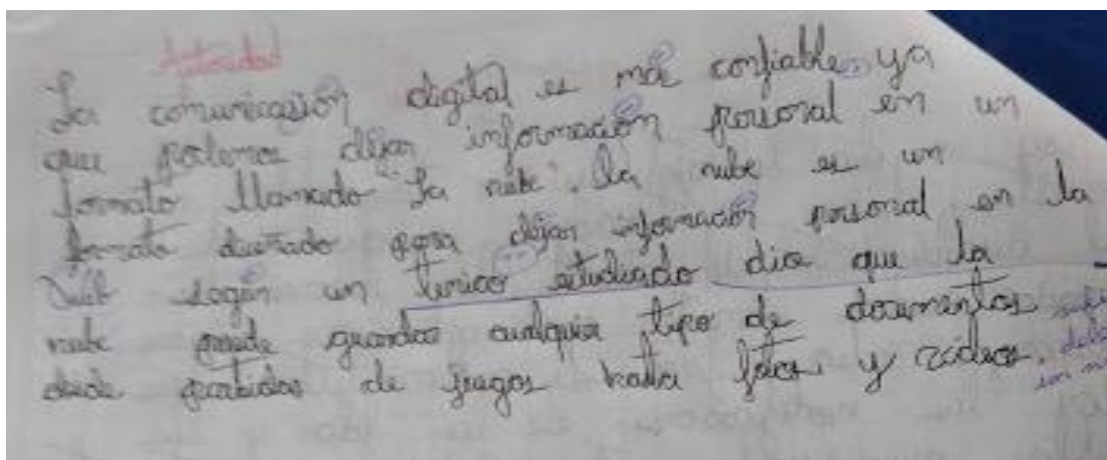 Autoridad
La comunicasión digital es más confiable, ya
que podemos dejar información personal en un
formato llamado La nube. La nube es un
formato diseñado para dejar información personal en la
Web según un tecnico estudiado dice que la
nube puede guardar cualquier tipo de documentos
desde partidas de juegos hasta fotos y videos.